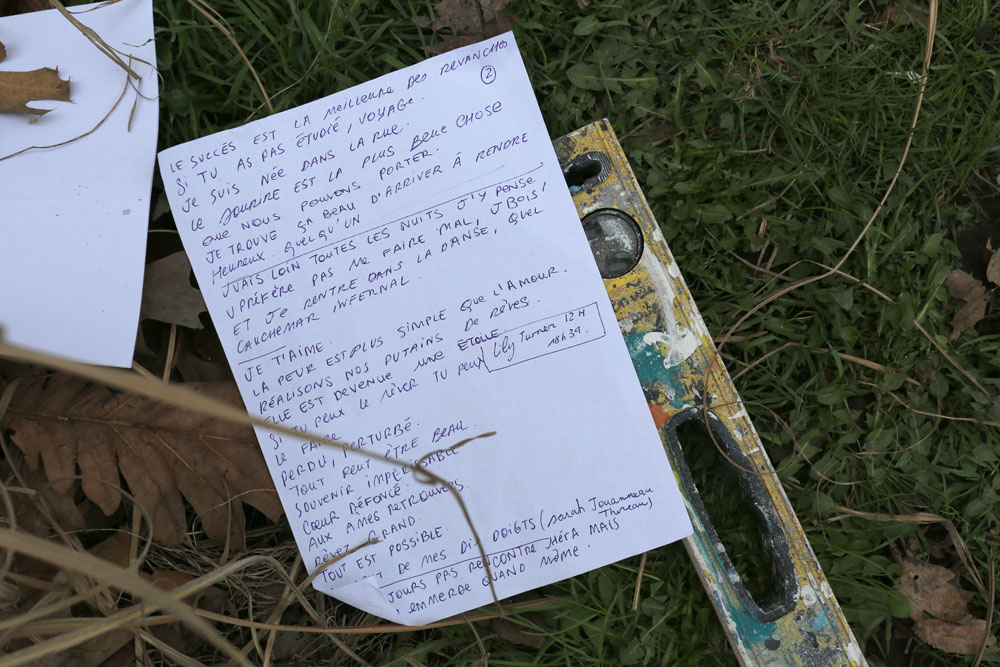 LE SUCCÈS EST LA MEILLEURE DES REVANCHES
②
SI TU AS PAS ÉTUDIÉ, VOYAGE.
JE SUIS NÉE DANS LA RUE.
LE SOURIRE EST LA PLUS BELLE CHOSE
QUE NOUS POUVONS PORTER.
JE TROUVE ÇA BEAU D'ARRIVER À RENDRE
HEUREUX QUELQU'UN
J'VAIS LOIN TOUTES LES NUITS J'Y PENSE
PRÉFÈRE PAS ME FAIRE MAL, J'BOIS,
ET JE RENTRE DANS LA DANSE, QUEL
CAUCHEMAR INFERNAL.
JE T'AIME.
LA PEUR EST PLUS SIMPLE QUE L'AMOUR.
RÉALISONS NOS PUTAINS DE RÊVES.
ELLE EST DEVENUE UNE ÉTOILE
SI TU PEUX LE RÊVER TU PEUX
LE FAIRE.
Lily Turner 12H
18H39.
PERDU, PERTURBÉ.
TOUT PEUT ÊTRE BEAU.
SOUVENIR IMPÉRISSABLE
CŒUR DÉFONCÉ.
AUX ÂMES RETROUVÉS.
RÊVEZ GRAND.
TOUT EST POSSIBLE.
DE MES DIX DOIGTS (Sarah Jouanneau
JOURS PAS RENCONTRÉ HÉRA MAIS
EMMERDE QUAND MÊME.